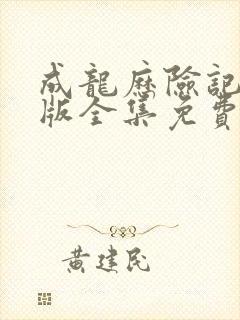 成龍歷險記
版全集免費
黃建民